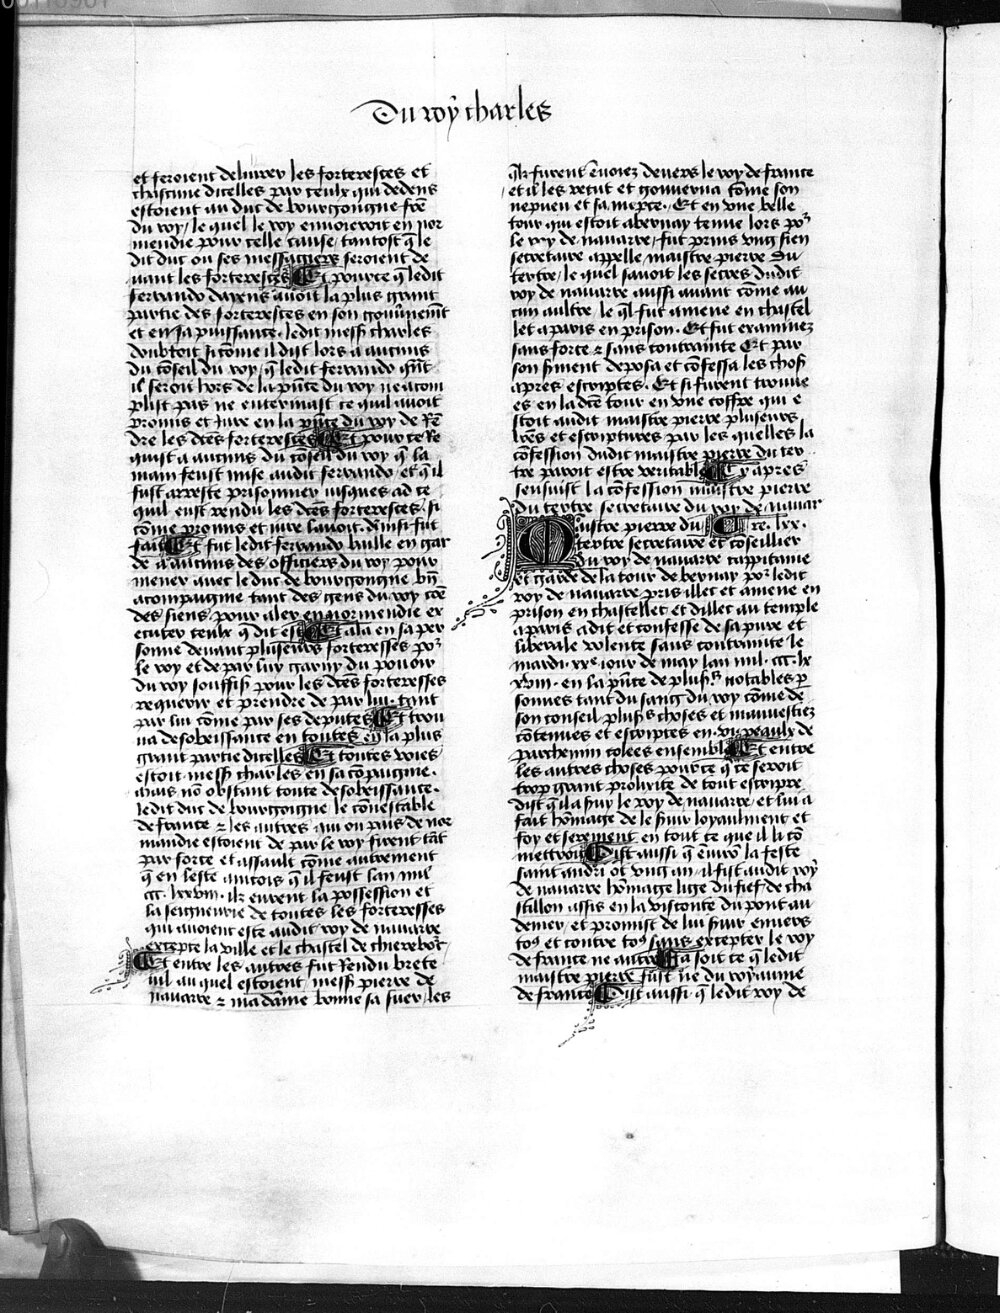 Du roy charles
et feroient delivrer les forteresces et
chascune dicelles par ceulx qui dedens
estoient au duc de bourgongne fre
du roy / le quel le roy envoieroit en nor
mendie pour celle cause / tantost q̄ le
dit duc ou ses messagiers seroient de
vant les forteresces Et pource q̄ ledit
ferrando dayens avoit la plus grant
partie des forteresces en son gouūnemēt
et en sa puissance. ledit mess charles
doubtoit si cōme il dist lors a aucuns
du cōseil du roy / q̄ ledit ferrando qn̄t
il seroit hors de la pn̄ce du roy neacom
plist pas ne enterinast ce quil avoit
promis et jure en la pn̄ce du roy de Rē
dre les dc̄es forteresces Et pour ce Re
quist a aucuns du cōseil du roy q̄ la
main feust mise audit ferrando / et q̄ il
fust arreste prisonnier jusques ad ce
quil eust rendu les dc̄es forteresces. si
cōme promis et jure lavoit. Ainsi fut
fait Et fut ledit ferrando baille en gar
de a aucuns des officiers du roy pour
mener avec le duc de bourgongne bn̄
acompaigne tant des gens du roy cōe
des siens pour aler en normendie ex
ecuter ceulx q̄ dit est Et ala en sa per
sonne devant plusieurs forteresses por
le roy et de par luy garny du povoir
du roy souffis pour les dc̄es forteresses
requerir et prendre de par lui. tant
par lui cōme par ses deputes Et trou
va desobeissance en toutes en la plus
grant partie dicelles Et toutes voies
estoit mess charles en sa cōpaignie.
Mais nō obstant toute desobeissance.
ledit duc de bourgongne le cōnestable
de france ⁊ les autres qui ou pais de nor
mandie estoient de par le roy firent tāt
par force et assault cōme autrement
q̄ en leste aincois q̄ il feust lan mil
ccc. lxxviii. ilz eurent la possession et
la seigneurie de toutes les forteresses
qui avoient este audit roy de navarre
excepte la ville et le chastel de chierebor
Et entre les autres fut Rendu brete
uil au quel estoient / mess pierre de
navarre ⁊ madame bonne sa suer / les
qlz furent ēvoiez devers le roy de france
et il les recut et gouverna cōme son
nepveu et sa niepce. Et en une belle
tour qui estoit abernay tenue lors por
le roy de navarre / fut prins ung sien
secretaire appelle maistre pierre du
tertre / le quel savoit les secres dudit
roy de navarre aussi avant cōme au
cun aultre. le ql fut amene en chastel
let a paris en prison. Et fut examinez
sans force ⁊ sans contrainte Et par
son sment deposa et cōfessa les chos
apres escriptes. Et si furent trouve
es en la dc̄e tour en une coffre qui e
stoit audit maistre pierre plusieurs
lrēs et escriptures par les quelles la
cōfession dudit maistre pierre du ter
tre paroit estre veritable Cy apres
sensuist la cōfession maistre pierre
du tertre secretaire du roy de navar
Maistre pierre du re. lxx.
tertre secretaire et cōseillier
du roy de navarre cappitaine
et garde de la tour de bernay por ledit
roy de navarre pris illec et amene en
prison en chastellet et dillec au temple
a paris a dit et confesse de sa pure et
liberale volente sans contrainte le
mardi. xxe. jour de may lan mil. ccc. lx
xviii. en la pn̄ce de plusrs notables p
sonnes tant du sang du roy cōme de
son conseil plusrs choses et mauvestiez
cōtenues et escriptes en. vi. peaulx de
parchemin colees ensemble Et entre
les autres choses pource q̄ ce seroit
trop grant prolixite de tout escripre
dist q̄ il a servy le roy de navarre / et lui a
fait hōmage de le servir loyaulment et
foy et serement en tout ce que il li cō
mettroit Dist aussi q̄ envirō la feste
saint andri ot ung an / il fist audit roy
de navarre hōmage lige du fief de cha
stillon assis en la visconte du pont au
demer / et promist de lui servir envers
tos et contre tos sans excepter le roy
de france ne autre Ja soit ce q̄ ledit
maistre pierre fust ne du royaume
de france Dist aussi q̄ ledit roy de